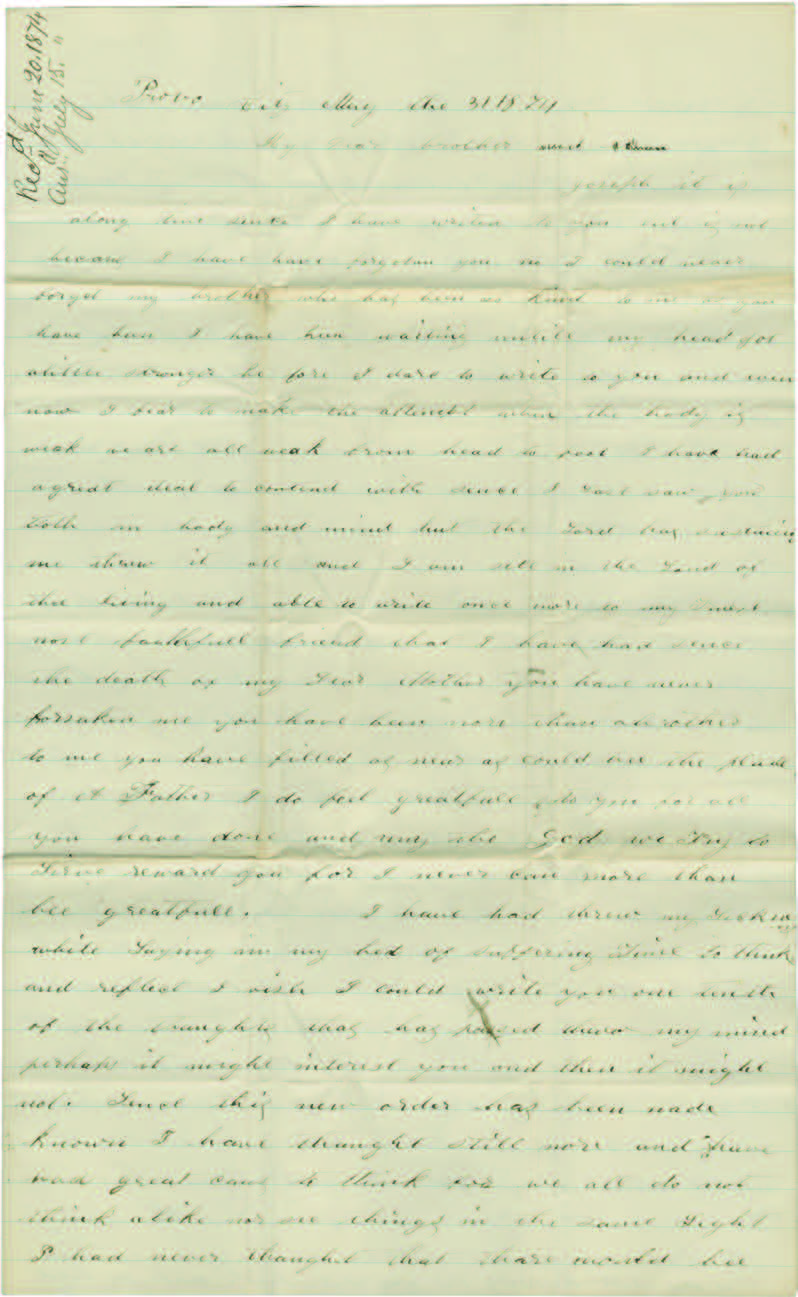 Recd June 20. 1874
Ans July 15. "
Provo City May the 31 1874
My dear brother
Joseph it is
along time since I have writen to you it is not
because I have have forgotan you no I could never
forget my brother who has been so kind to me as you
have bun I have bun waiting untill my head got
alittle stronger be fore I dard to write to you and even
now I fear to make the attempt when the body is
weak we are all weak from head to foot I have had
agreat deal to contend with since I last saw you
both in body and mind but the Lord has sustained
me threw it all and I am still in the Land of
the Living and able to write once more to my
most faithfull friend that I have had since
the death of my Dear Mother you have never
forsaken me you have been more than abrother
to me you have filled as near as could bee the place
of A Father I do feel greatfull to you for all
you have done and may the God we try to
Serve reward you for I never can more than
bee greatfull. I have had threw my Sickness
while Laying in my bed of suffering Time to think
and reflect I wish I could write you one tenth
of the thaughts that has passed threw my mind
perhaps it might interest you and then it might
not. Since this new order has been made
known I have thaught still more and have
had great caus to think for we all do not
think alike nor see things in the same Light
I had never thaught that thare would bee